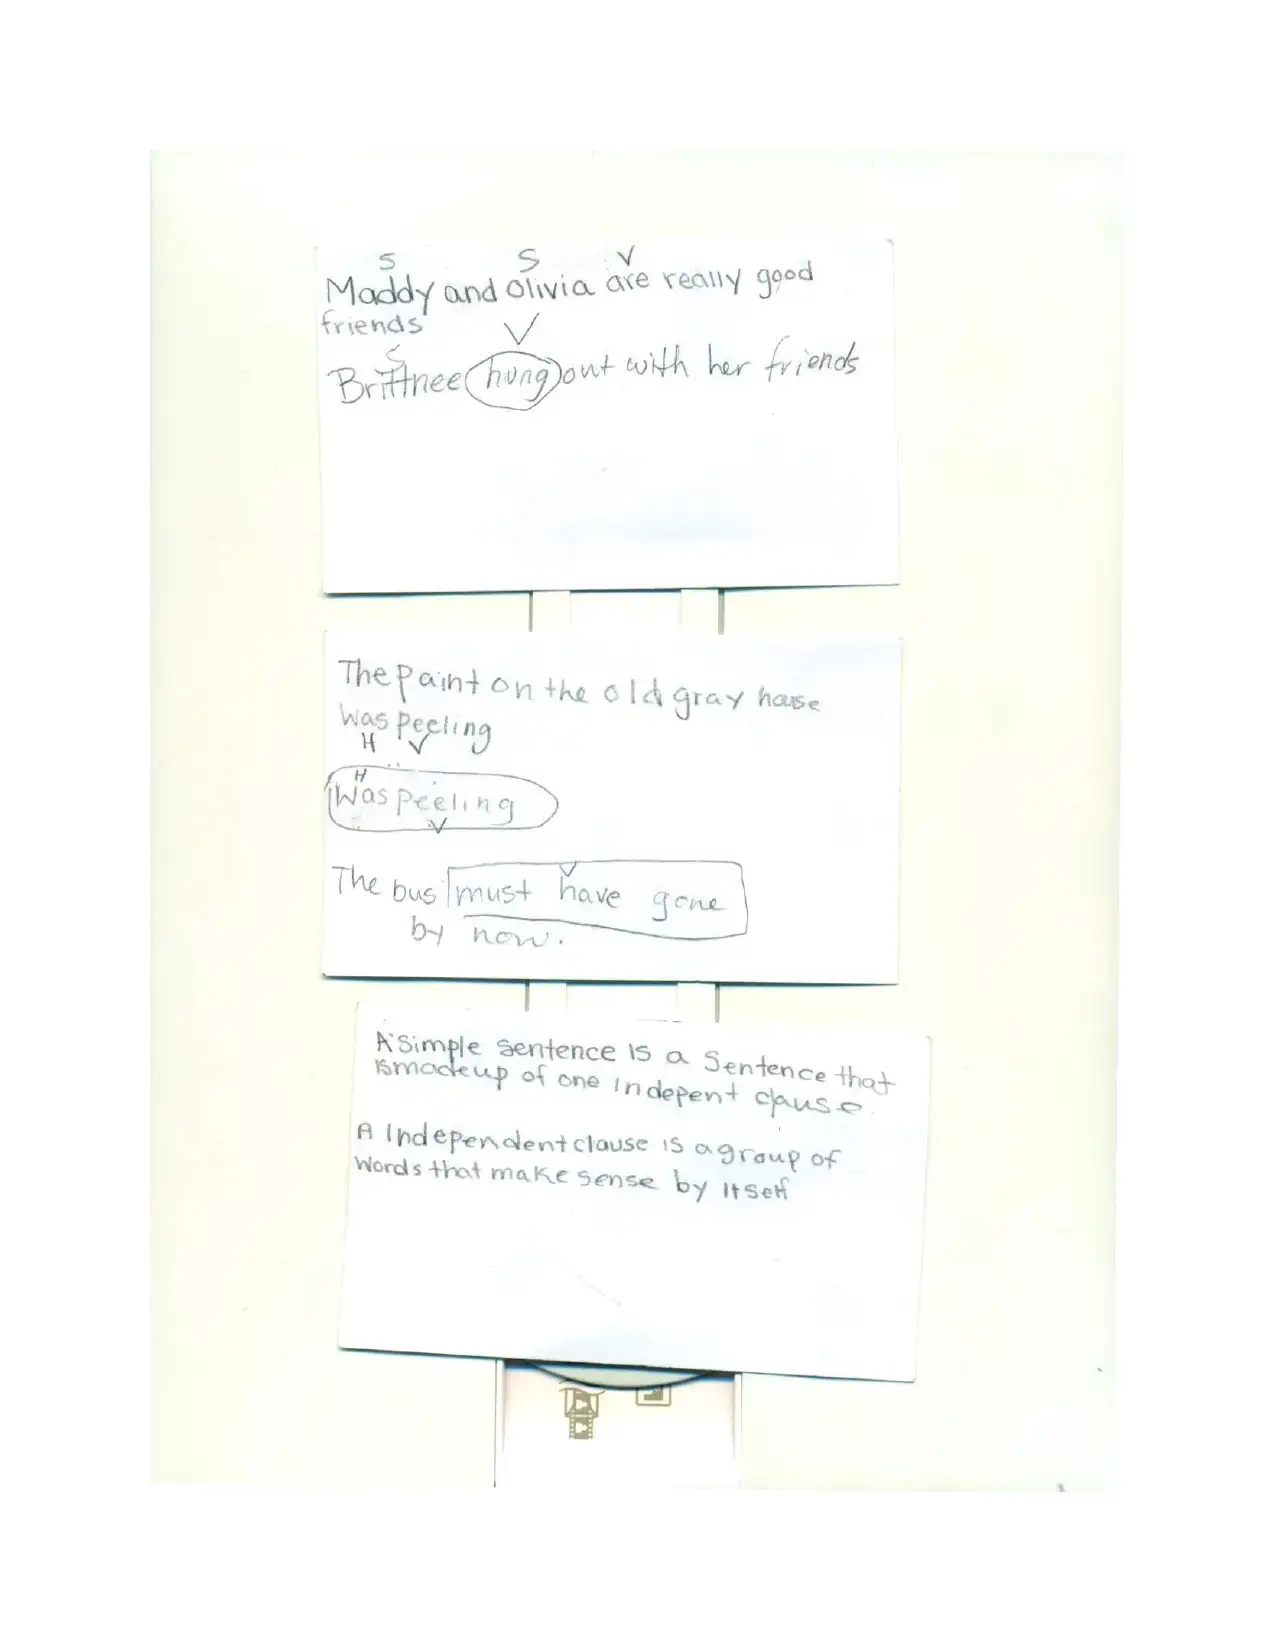 S S V
Maddy and Olivia are really good
friends
S V
Brittnee hung out with her friends
The paint on the old gray house
Was peeling
H V
H
Was peeling
V
V
The bus must have gone
by now.
A simple sentence is a sentence that
is made up of one indepent clause.
A Independent clause is a group of
words that make sense by itself